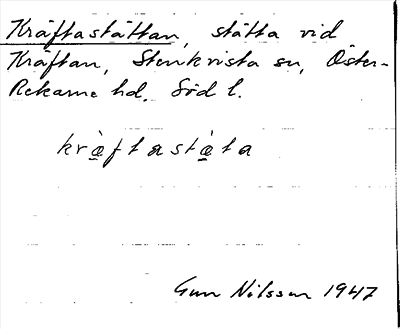 Kräftastättan, stätta vid
Kräftan, Stenkvista sn, Öster-
Rekarne hd. Söd l.
kræ̀ftastæ̀ta
Gun Nilsson 1947